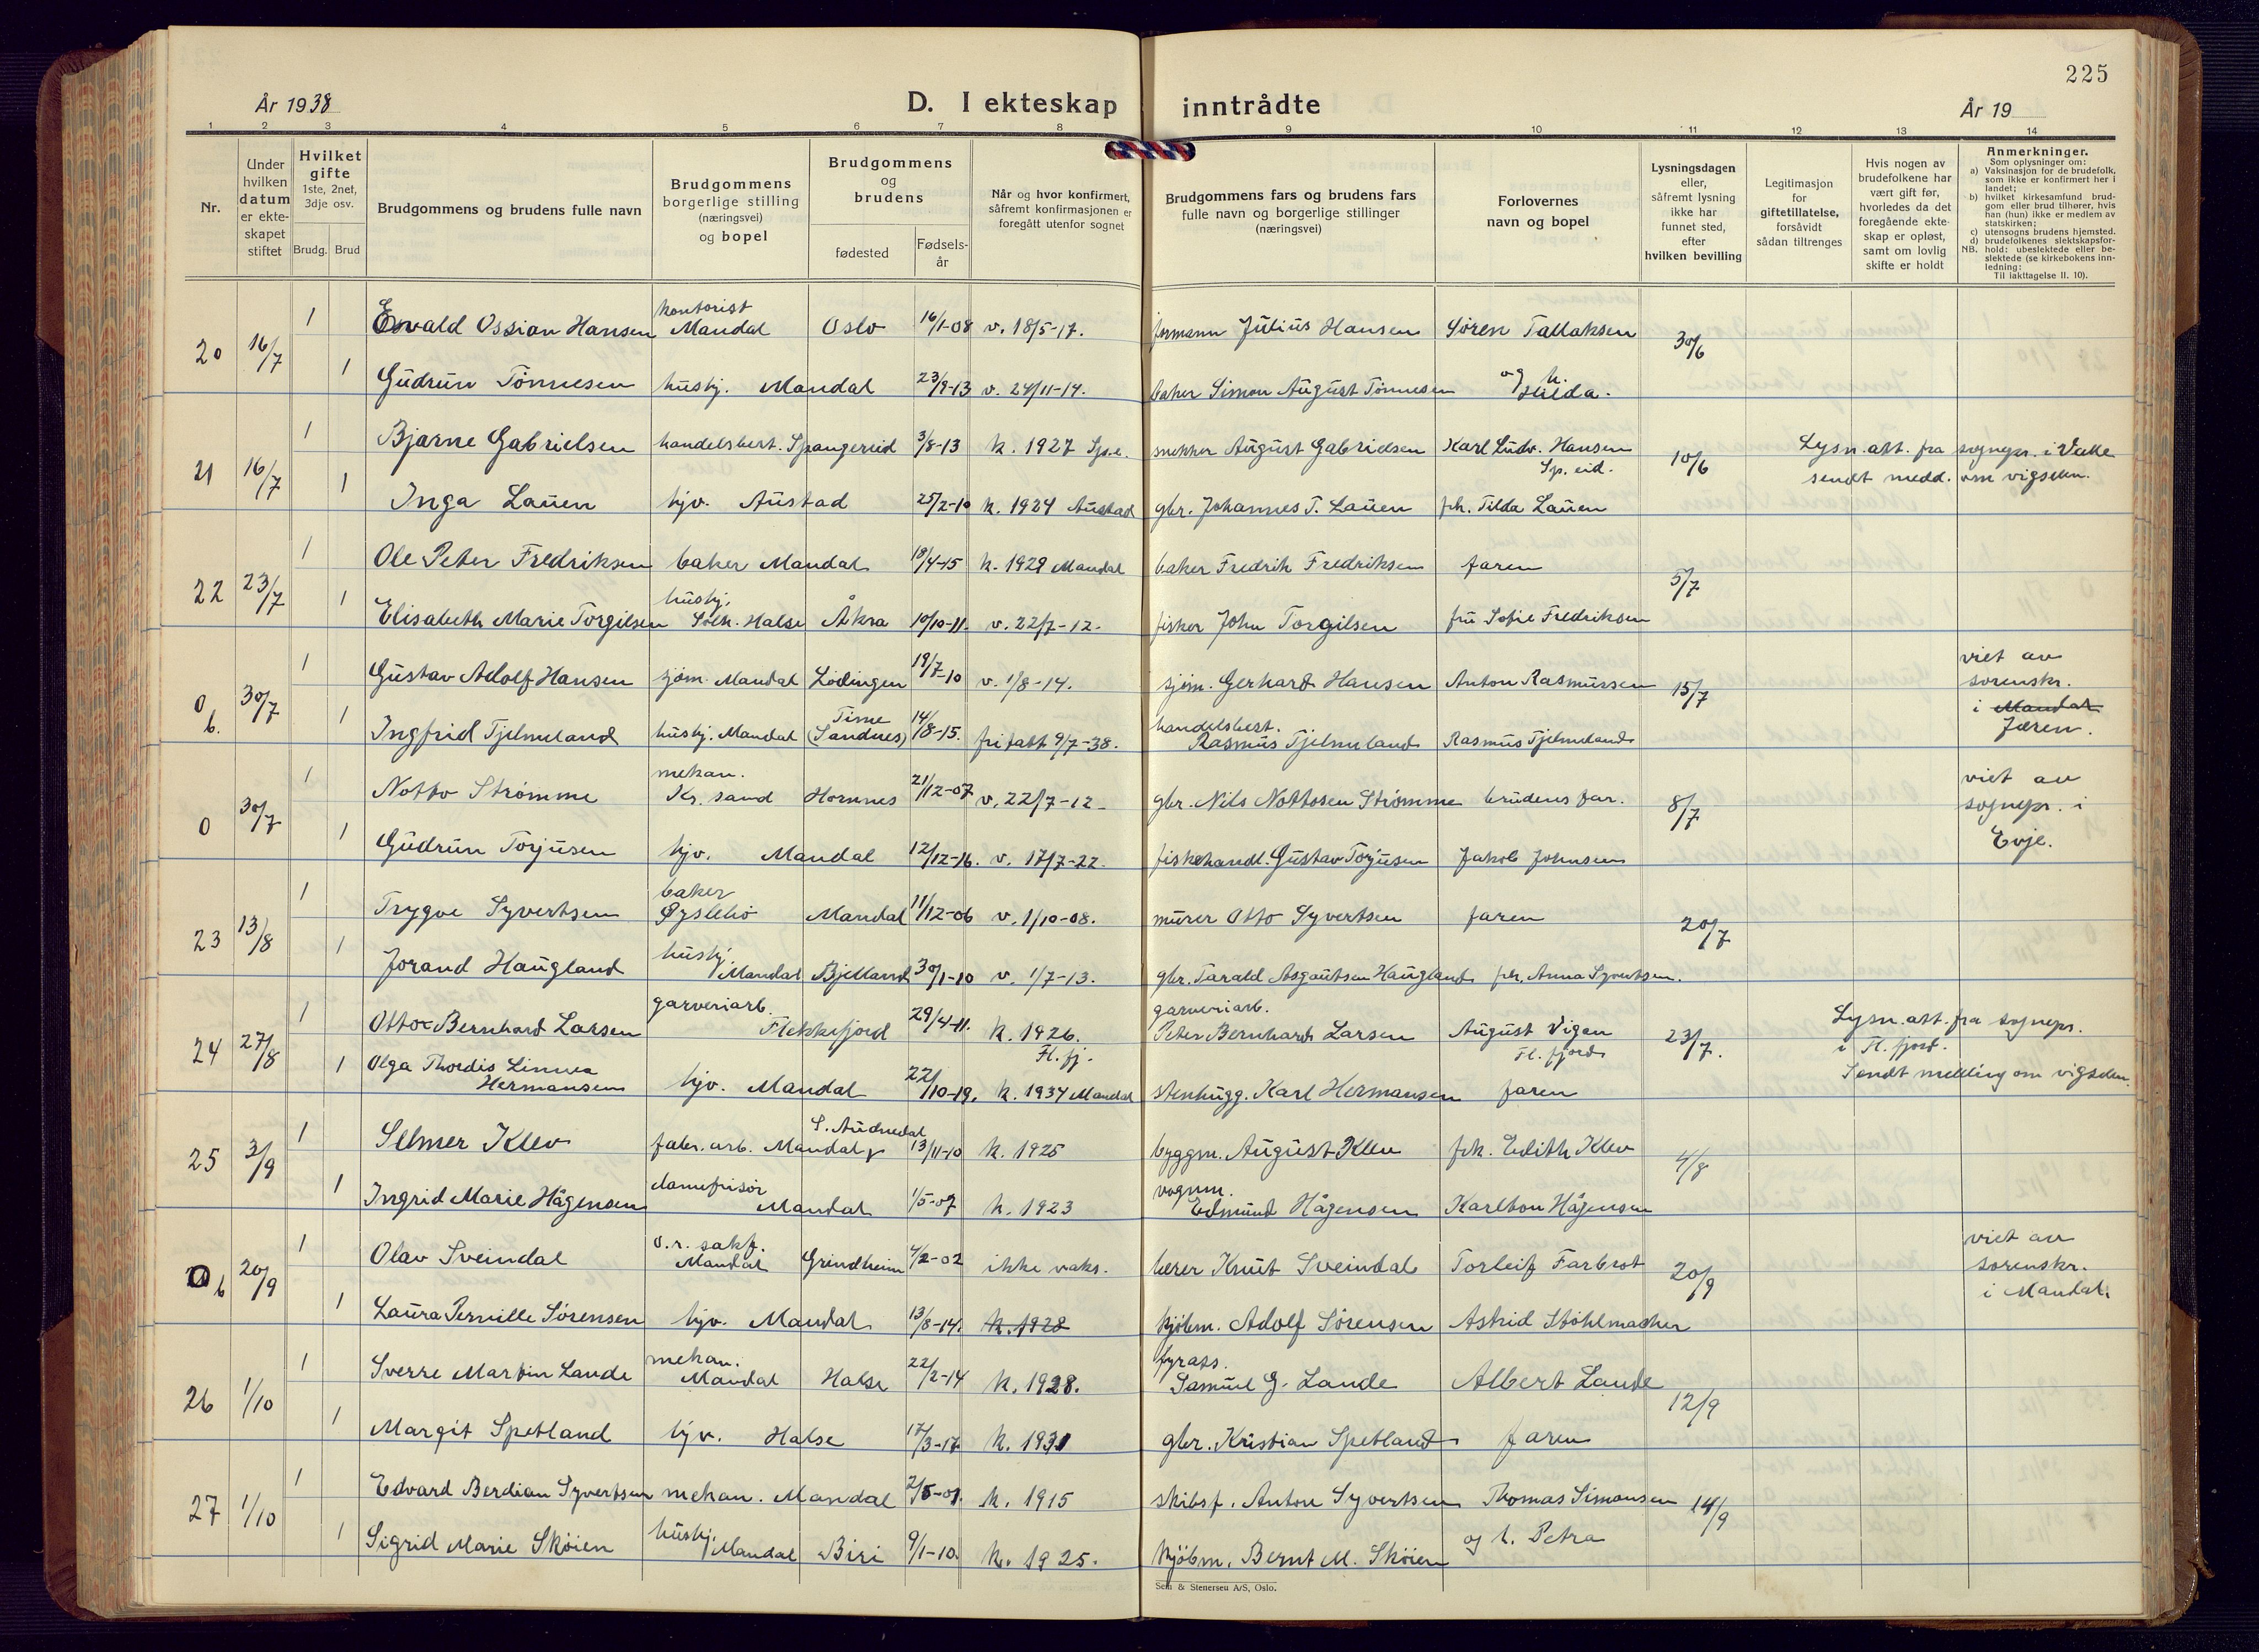 225
År 1938
D. I ekteskap inntrådte
År 19
1 2 3 4 5 6 7 8 9 10 11 12 13 14
Nr.
Under hvilken datum er ekteskapet stiftet
Hvilket gifte 1ste, 2net, 3dje osv.
Brudg. Brud
Brudgommens og brudens fulle navn
Brudgommens borgerlige stilling (næringsvei) og bopel
Brudgommens og brudens
fødested
Fødselsår
Når og hvor konfirmert, såfremt konfirmasjonen er foregått utenfor sognet
Brudgommens fars og brudens fars fulle navn og borgerlige stillinger (næringsvei)
Forlovernes navn og bopel
Lysningsdagen eller, såfremt lysning ikke har funnet sted, efter hvilken bevilling
Legitimasjon for giftetillatelse, forsåvidt sådan tiltrenges
Hvis nogen av brudefolkene har vært gift før, hvorledes da det foregående ekteskap er opløst, samt om lovlig skifte er holdt
Anmerkninger.
Som oplysninger om:
a) Vaksinasjon for de brudefolk, som ikke er konfirmert her i landet;
b) hvilket kirkesamfund brudgom eller brud tilhører, hvis han (hun) ikke er medlem av statskirken;
c) utensogns brudens hjemsted.
d) brudefolkenes slektskapsforhold: ubeslektede eller beslektede (se kirkebokens innledning:
NB. Til iakttagelse II. 10).
20 16/7 1 Osvald Ossian Hansen kontorist Mandal Oslo 16/1-08 v. 18/5-17. formann Julius Hansen Søren Tallaksen 30/6
1 Gudrun Tønnesen husbj. Mandal 23/9-13 v. 24/11-14. baker Simon August Tønnesen og h. Hulda.
21 16/7 1 Bjarne Gabrielsen handelsbest. Spangereid 3/8-13 k. 1927 Sp.e. snekker August Gabrielsen Karl Ludv. Hansen Sp. eid. 10/6 Lysn. att. fra sognepr. i Valle
sendt medd. om vigselen.
1 Inga Lauen hjv. Austad 25/2-10 k. 1924 Austad gbr. Johannes T. Lauen frk. Tilda Lauen
22 23/7 1 Ole Peter Fredriksen baker Mandal 18/4-15 k. 1929 Mandal baker Fredrik Fredriksen faren 5/7
1 Elisabeth Marie Torgilsen husbj. Halse Åkra 10/10-11. v. 22/7-12. fisker John Torgilsen fru Sofie Fredriksen
0 b. 30/7 1 Gustav Adolf Hansen sjøm. Mandal Lødingen 19/7-10 v. 1/8-14. sjøm. Gerhard Hansen Anton Rasmussen 15/7 viet av
sorenskr.
i Mandal
Jæren.
1 Ingfrid Tjelmeland husbj. Mandal Time (Sandnes) 14/8-15. fritatt 9/7-38. handelsbest. Rasmus Tjelmeland Rasmus Tjelmeland
0 30/7 1 Notto Strømme mekan. Kr. sand Hornnes 21/12-07 v. 22/7-12. gbr. Nils Nottosen Strømme brudens far. 8/7 viet av
sognepr. i
Evje.
1 Gudrun Torjusen hjv. Mandal 12/12-16. v. 17/7-22. fiskehandl. Gustav Torjusen Jakob Johnsen
23 13/8 1 Trygve Syvertsen baker Øyslebø Mandal 11/12-06 v. 1/10-08. murer Otto Syvertsen faren 20/7
1 Jorand Haugland husbj. Mandal Bjelland 30/1-10 v. 1/7-13. gbr. Tarald Asgautsen Haugland frk. Anna Syvertsen.
24 27/8 1 Otto Bernhard Larsen garveriarb. Flekkefjord 29/4-11. k. 1926. Fl. fj. garveriarb. Peter Bernhard Larsen August Vigen Fl. fjord 23/7. Lysn. att. fra sognepr.
i Fl. fjord.
Sendt melding om vigselen.
1 Olga Thordis Linnea Hermansen hjv. Mandal 22/10-19. k. 1934 Mandal stenhugg. Karl Hermansen faren
25 3/9 1 Selmer Klev fabr. arb. Mandal S. Audnedal 13/11-10 k. 1925 byggm. August Klev frk. Edith Klev 4/8
1 Ingrid Marie Hågensen damefrisør Mandal 1/5-07 k. 1923 vognm. Edmund Hågensen Karlton Hågensen
0 b 20/9 1 Olav Sveindal o.r. sakf. Mandal Grindheim 4/2-02 ikke vaks. lærer Knut Sveindal Torleif Farbrot 20/9 viet av
sorenskr.
i Mandal.
1 Laura Pernille Sørensen hjv. Mandal 13/8-14. k. 1928 kjøbm. Adolf Sørensen Astrid Stöhlmacher
26 1/10 1 Sverre Martin Lande mekan. Mandal Halse 22/2-14 k. 1928. fyrass. Samuel G. Lande Albert Lande 12/9
1 Margit Spetland hjv. Halse 17/3-17 k. 1931 gbr. Kristian Spetland faren
27 1/10 1 Edvard Berdian Syvertsen mekan. Mandal 2/5-01. k. 1915 skibsf. Anton Syvertsen Thomas Simonsen 14/9
1 Sigrid Marie Skøien husbj. Mandal Biri 9/1-10. k. 1925. kjøbm. Bernt M. Skøien og h. Petra
Sem & Stenersen A/S, Oslo.